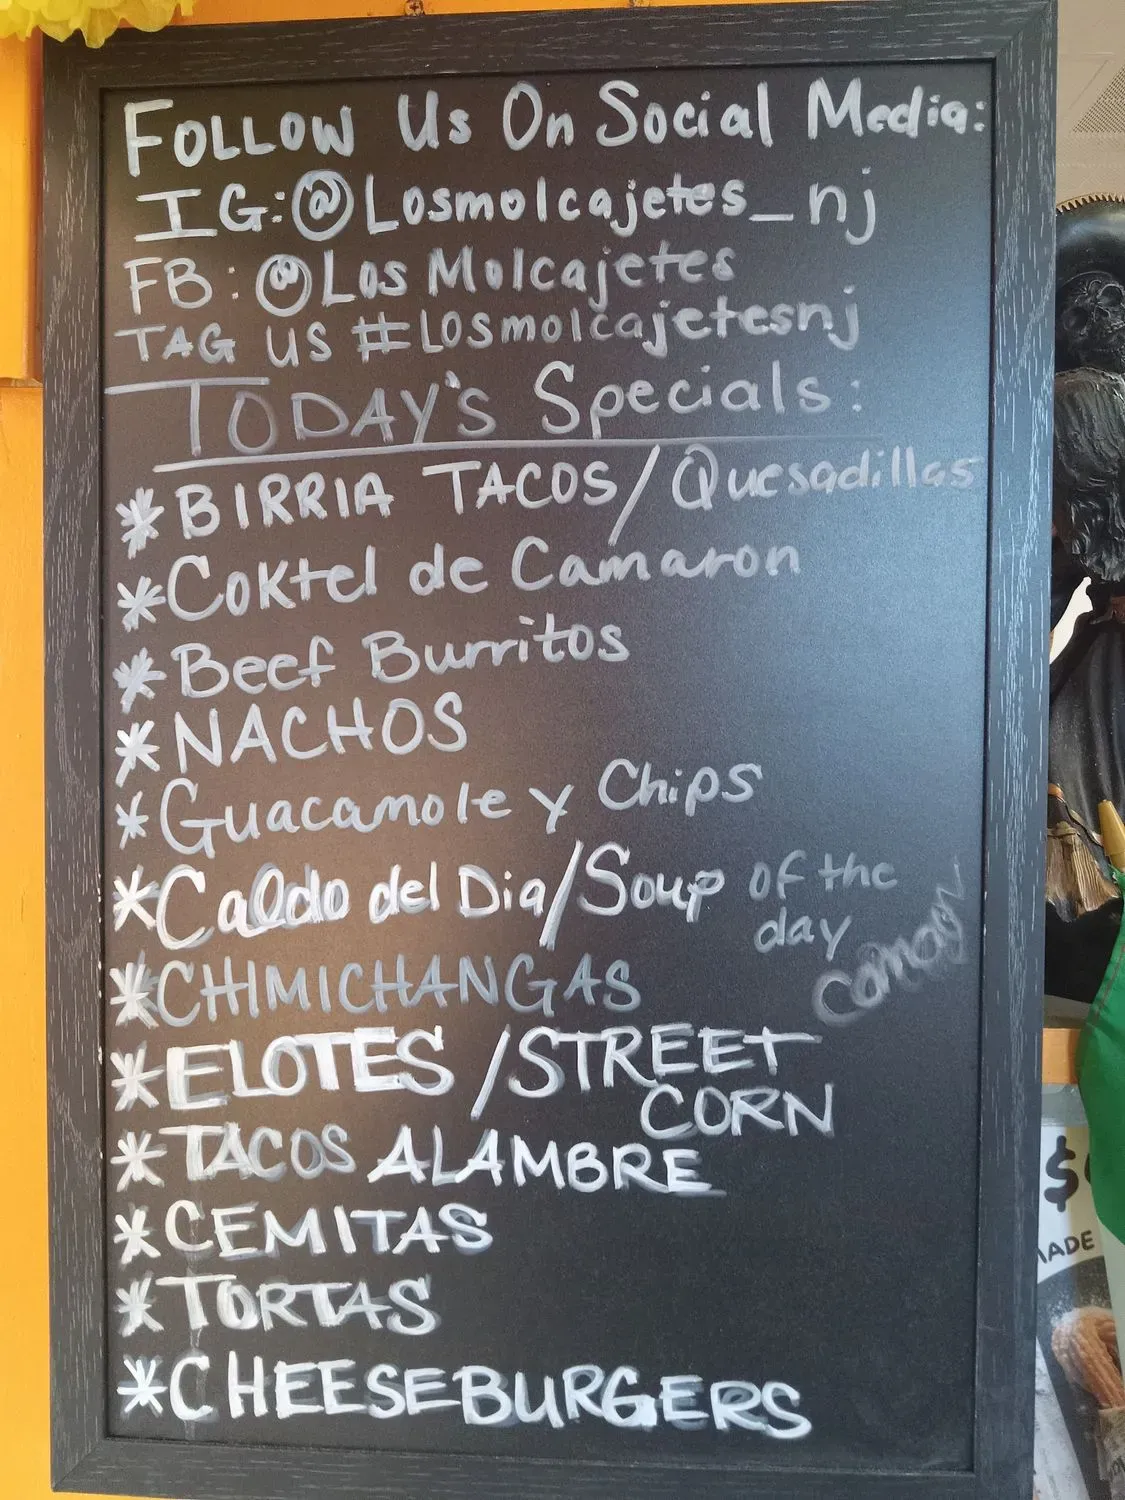 FOLLOW Us On Social Media:
IG:@Losmolcajetes_nj
FB: @Los Molcajetes
TAG US #Losmolcajetesnj
TODAY'S Specials:
*BIRRIA TACOS/Quesadillas
*Coktel de Camaron
*Beef Burritos
*NACHOS
*Guacamole y Chips
*Caldo del Dia/Soup of the
day
*CHIMICHANGAS
*ELOTES /STREET
CORN
*TACOS ALAMBRE
*CEMITAS
*TORTAS
*CHEESEBURGERS
$
MADE